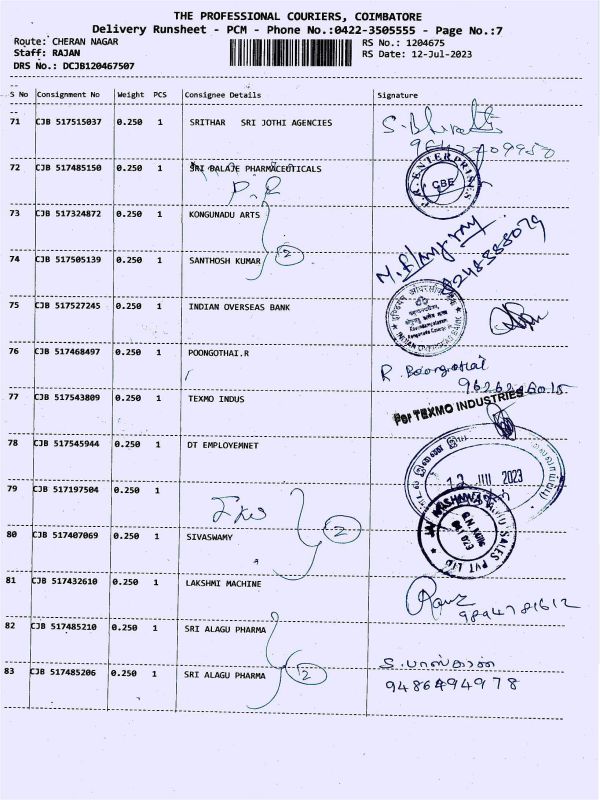 THE PROFESSIONAL COURIERS, COIMBATORE
Delivery Runsheet - PCM - Phone No.:0422-3505555 - Page No.:7
Route: CHERAN NAGAR RS No.: 1204675
Staff: RAJAN RS Date: 12-Jul-2023
DRS No.: DCJB120467507
S No Consignment No Weight PCS Consignee Details Signature
71 CJB 517515037 0.250 1 SRITHAR SRI JOTHI AGENCIES
72 CJB 517485150 0.250 1 SRI BALAJE PHARMACEUTICALS
ENTERPRISES
CBE
73 CJB 517324872 0.250 1 KONGUNADU ARTS
74 CJB 517505139 0.250 1 SANTHOSH KUMAR 2
75 CJB 517527245 0.250 1 INDIAN OVERSEAS BANK
INDIAN OVERSEAS BANK
76 CJB 517468497 0.250 1 POONGOTHAI.R
R. Poongothai
77 CJB 517543809 0.250 1 TEXMO INDUS
For TEXMO INDUSTRIES
78 CJB 517545944 0.250 1 DT EMPLOYEMNET
12 JUL 2023
79 CJB 517197504 0.250 1
2
SALES PVT LTD
80 CJB 517407069 0.250 1 SIVASWAMY
81 CJB 517432610 0.250 1 LAKSHMI MACHINE
9894781612
82 CJB 517485210 0.250 1 SRI ALAGU PHARMA
83 CJB 517485206 0.250 1 SRI ALAGU PHARMA 2
9486494978